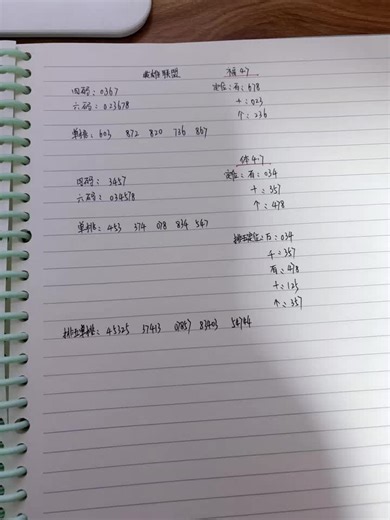 英雄联盟 福4.7
四码:0367 定位:百:678
六码:023678 十:023
个:236
单挑:603 872 820 736 867
体4.7
四码:3457 定位:百:034
六码:034578 十:357
个:478
单挑:453 374 078 834 547
排五定位:万:034
千:357
百:478
十:125
个:357
排五单挑:45325 37413 07857 83403 58784